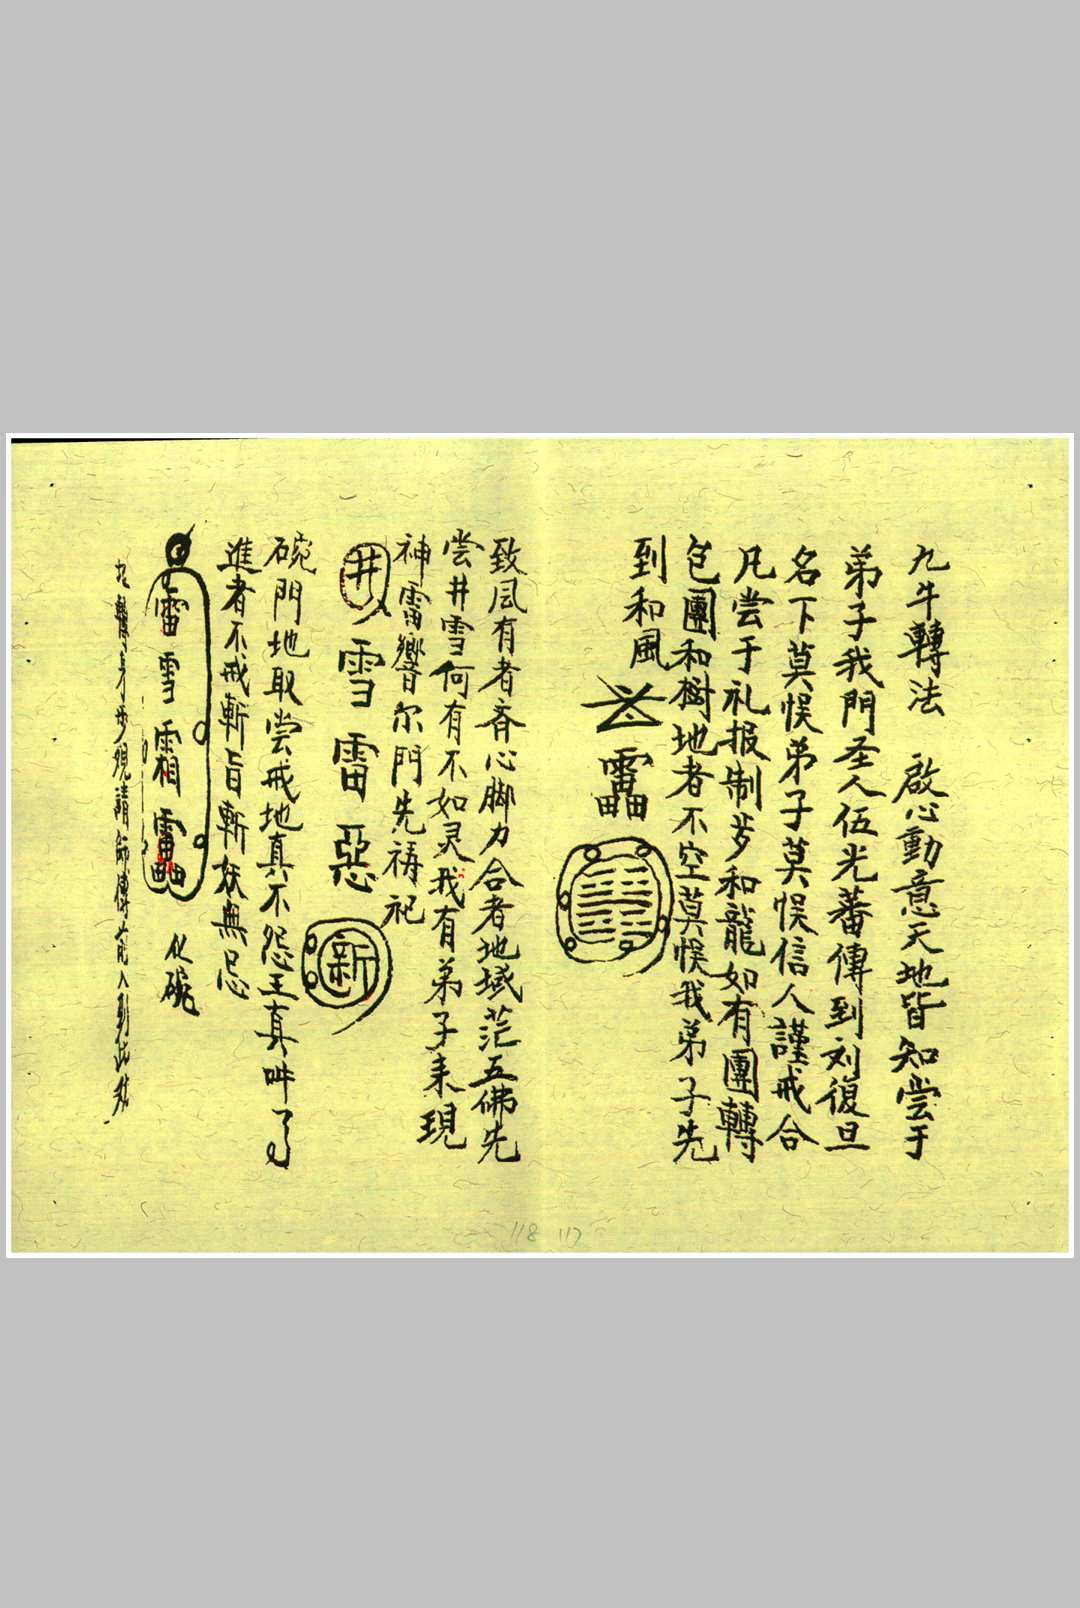 九牛轉法　啟心動意天地皆知尝于
弟子我門圣人伍光蕃傳到刘復旦
名下莫悮弟子莫悮信人謹戒合
凡尝于礼报制岁和龍如有團轉
包團和樹地者不空莫悮我弟子先
到和風
致風有者斉心脚力合者地域茫五佛先
尝井雪何有不如灵我有弟子来現
神雷響尔門先祷祀
井雪雷惡新
碗門地取尝戒地真不怨王真叫了
進者不戒斬旨斬妖無忌
雷雪霜
化碗
九轉身步規請師傳前人到此
118 117